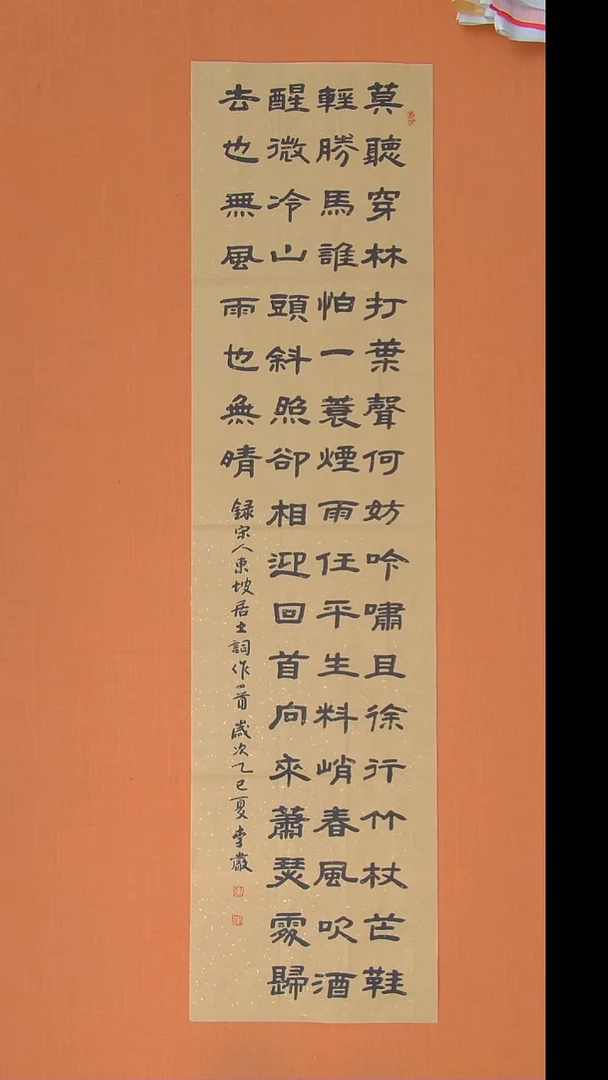 莫聽穿林打葉聲何妨吟嘯且徐行竹杖芒鞋
輕勝馬誰怕一蓑煙雨任平生料峭春風吹酒
醒微冷山頭斜照卻相迎回首向來蕭瑟處歸
去也無風雨也無晴
録宋人東坡居士詞作一首 歲次乙巳夏 李嚴